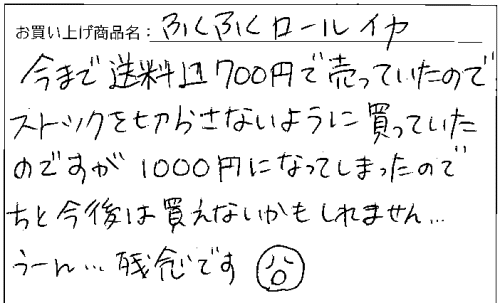 お買い上げ商品名：ふくふくロールイヤ
今まで送料込700円で売っていたので
ストックを切らさないように買っていた
のですが1000円になってしまったので
ちと今後は買えないかもしれません…
うーん…残念です